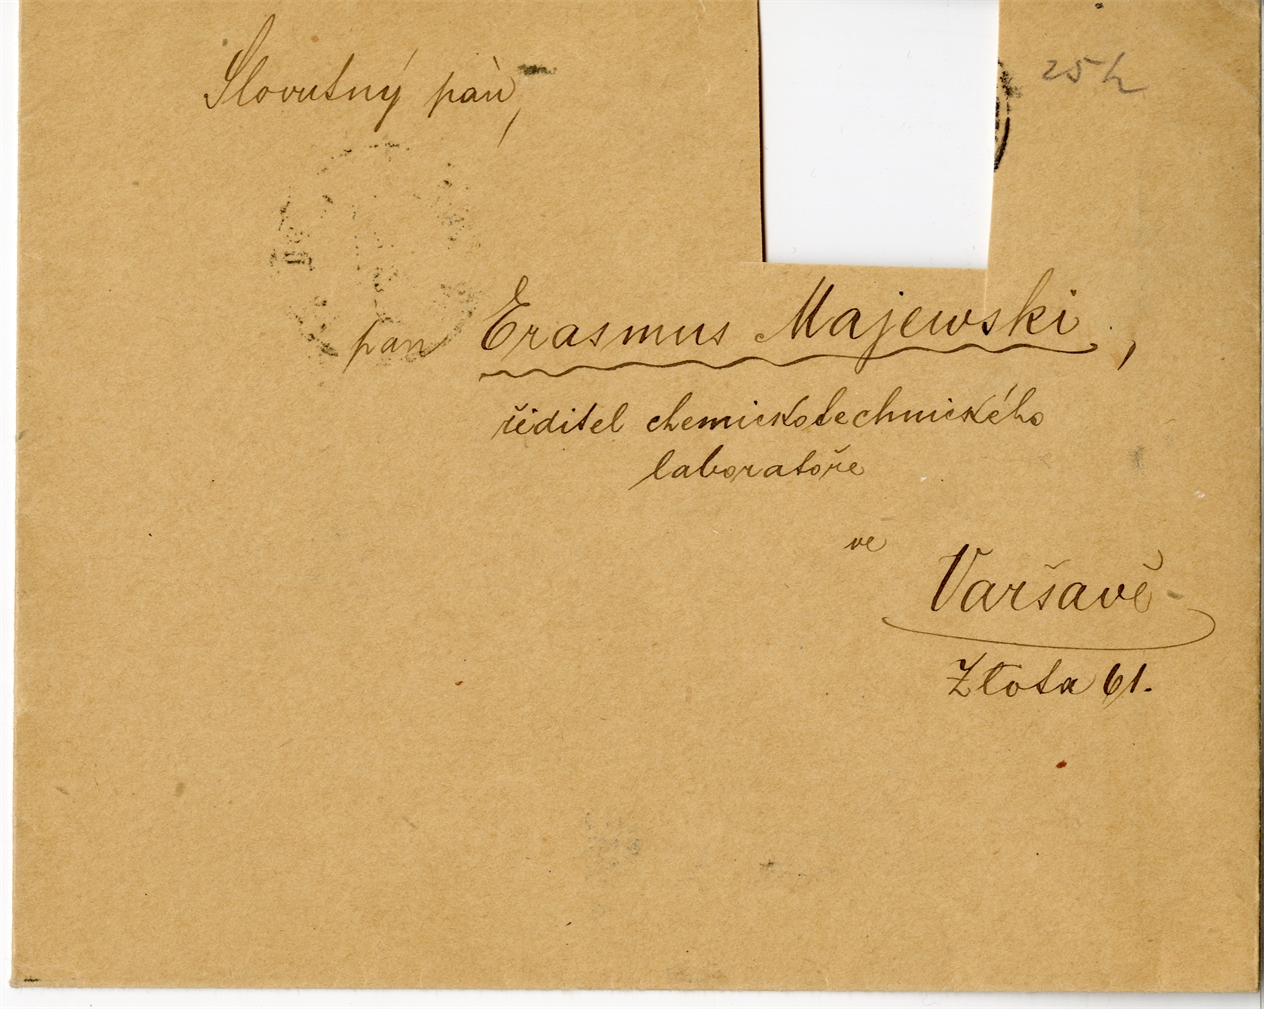 Slovutný pán,
25 h
pan Erasmus Majewski,
ředitel chemickotechnického
laboratoře
ve
Varšavě
Złota 61.